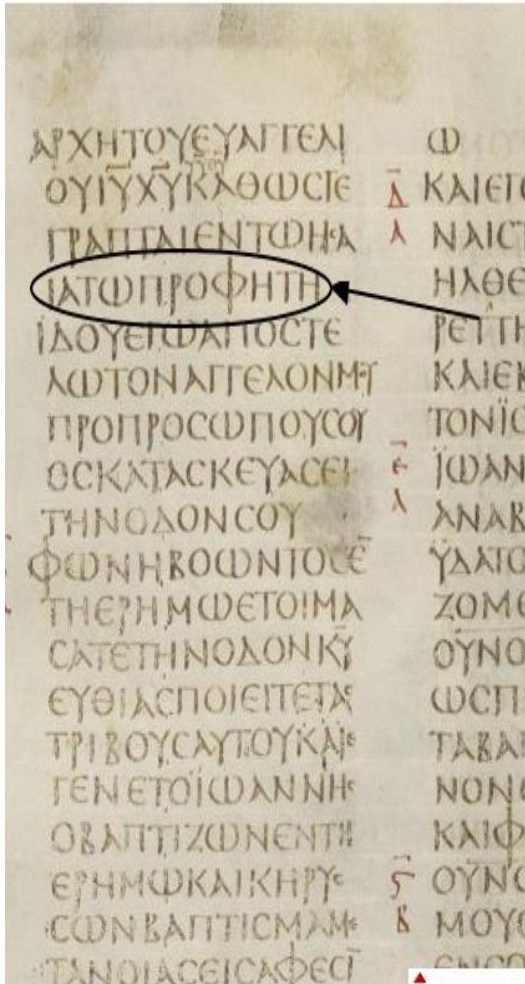 ΑΡΧΗΤΟΥΕΥΑΓΓΕΛΙ
ΟΥΙ̅Υ̅Χ̅Υ̅ΚΑΘΩϹΓΕ
ΓΡΑΠΤΑΙΕΝΤΩΗϹΑ
ΙΑΤΩΠΡΟΦΗΤΗ
ΪΔΟΥΕΓΩΑΠΟϹΤΕ
ΛΩΤΟΝΑΓΓΕΛΟΝΜΟΥ
ΠΡΟΠΡΟϹΩΠΟΥϹΟΥ
ΟϹΚΑΤΑϹΚΕΥΑϹΕΙ
ΤΗΝΟΔΟΝϹΟΥ
ΦΩΝΗΒΟΩΝΤΟϹΕ̅
ΤΗΕΡΗΜΩΕΤΟΙΜΑ
ϹΑΤΕΤΗΝΟΔΟΝΚ̅Υ̅
ΕΥΘΙΑϹΠΟΙΕΙΤΕΤΑϹ
ΤΡΙΒΟΥϹΑΥΤΟΥΚΑΙΕ
ΓΕΝΕΤΟΪΩΑΝΝΗϹ
ΟΒΑΠΤΙΖΩΝΕΝΤΗ
ΕΡΗΜΩΚΑΙΚΗΡΥϹ
ϹΩΝΒΑΠΤΙϹΜΑΜΕ
ΤΑΝΟΙΑϹΕΙϹΑΦΕϹΙ̅
Ω
Δ̅ ΚΑΙΕΓΕ
Α ΝΑΙϹΤ
ΗΛΘΕ
ΡΕΤΤΗ
ΚΑΙΕΚ
ΤΟΝΪΟ
Ε̅ ΪΩΑΝ
Α ΑΝΑΒ
ΫΔΑΤΟ
ΖΟΜΕ
ΟΥΝΟ
ΩϹΠ
ΤΑΒΑΙ
ΝΟΝΕ
ΚΑΙΦ
Ϛ̅ ΟΥΝΟ
Β ΜΟΥ
ΕΝϹΟ